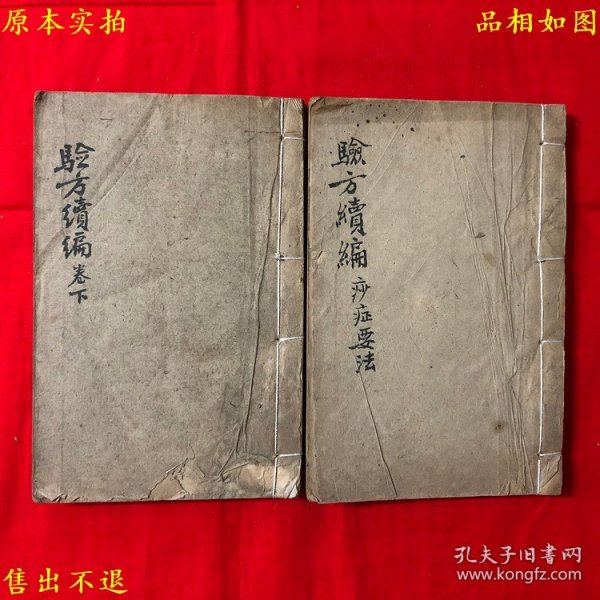 原本实拍
品相如图
驗方續編卷下
驗方續編痧症要法
售出不退
孔夫子旧书网
www.kongfz.com